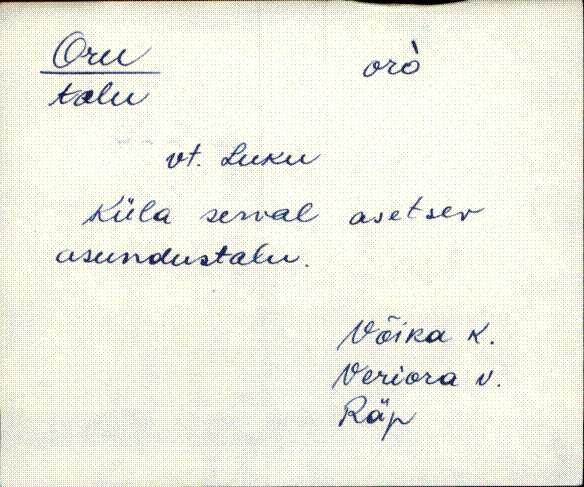 Oru orò
talu
vt. Luku
Küla serval asetsev
asundustalu.
Võika k.
Veriora v.
Räp